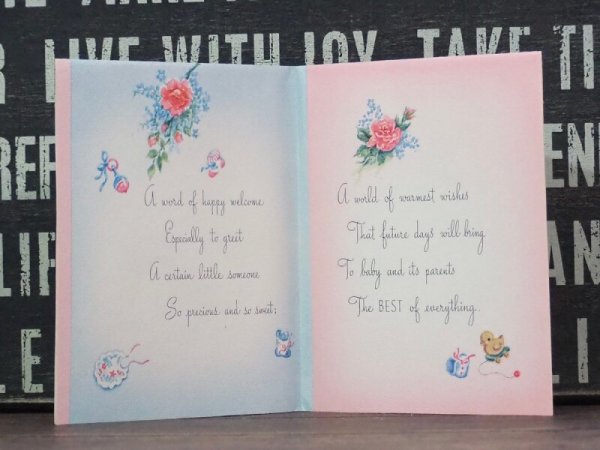 LIVE WITH JOY. TAKE TI
REF
EN
LIF
AN
LE
LI
A word of happy welcome
Especially to greet
A certain little someone
So precious and so sweet;
A world of warmest wishes
That future days will bring
To baby and its parents
The BEST of everything.